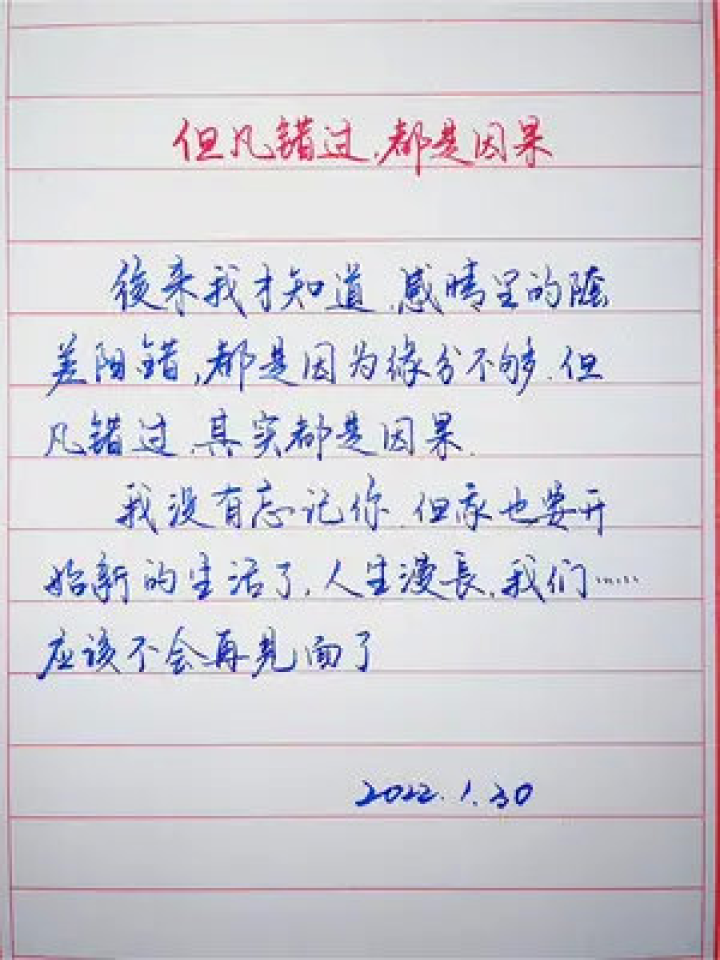 但凡错过,都是因果
後来我才知道.感情里的陰
差阳错,都是因为缘分不够.但
凡错过.其实都是因果.
我没有忘记你.但我也要开
始新的生活了.人生漫長.我们……
应该不会再見面了
2022.1.30